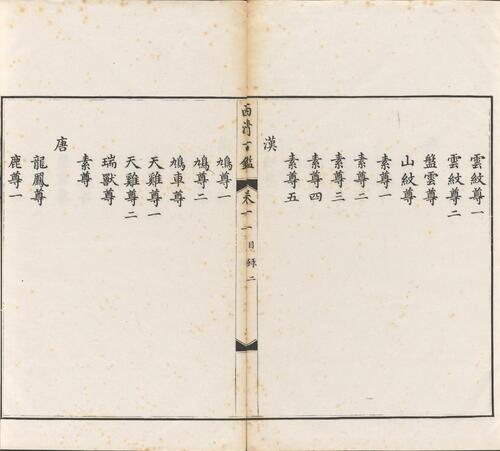 雲紋尊一
雲紋尊二
盤雲尊
山紋尊
素尊一
素尊二
素尊三
素尊四
素尊五
漢
西清古鑑
卷十一
目錄
二
鳩尊一
鳩尊二
鳩車尊
天雞尊一
天雞尊二
瑞獸尊
素尊
唐
龍鳳尊
鹿尊一